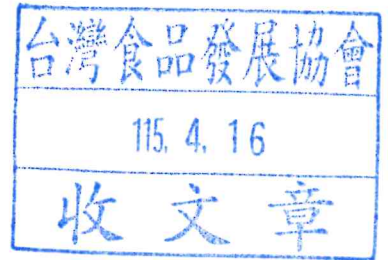 台灣食品發展協會
115. 4. 16
收文章